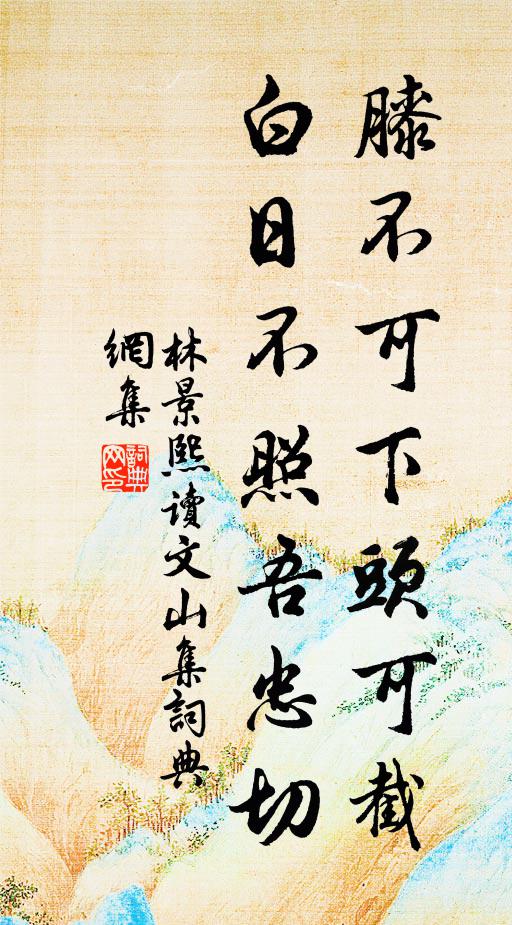 膝不可下頭可截
白日不照吾忠切
林景熙讀文山集詞典
網集
詞典
網印